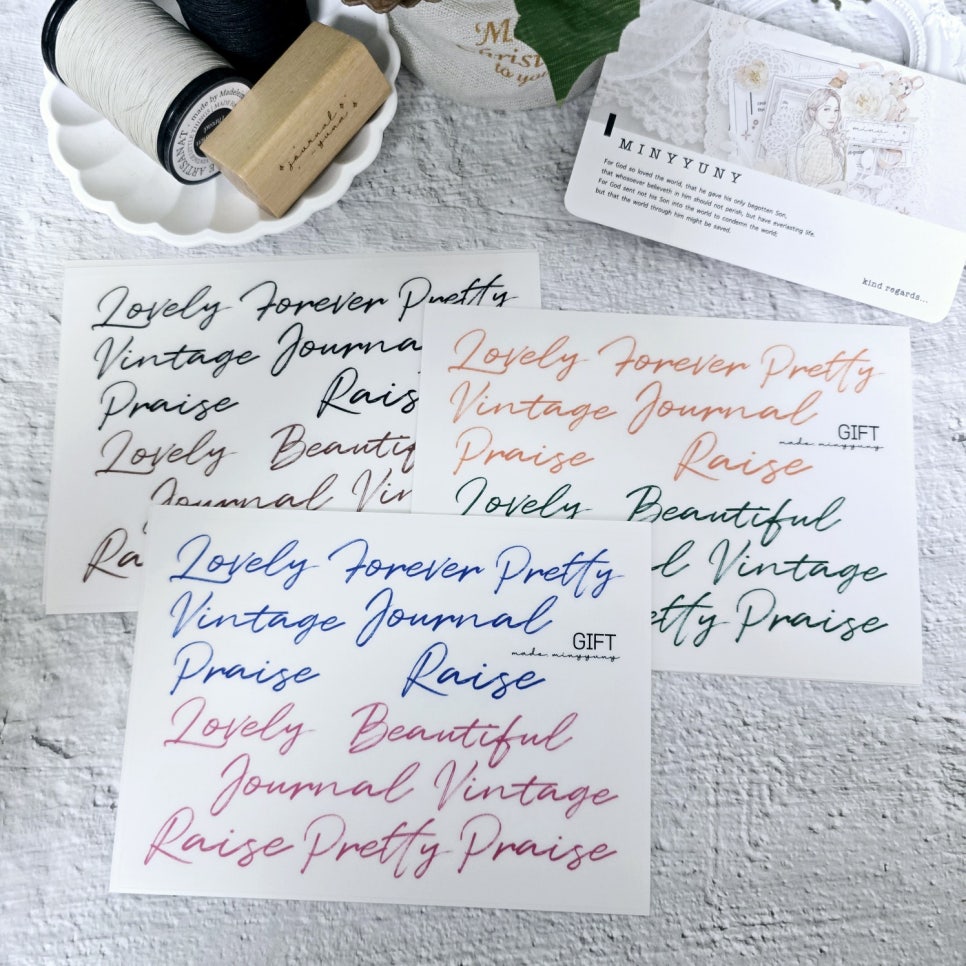 made by Madele
ARTISANAT
journal
yuns
M
Christ
to yo
MINYYUNY
For God so loved the world, that he gave his only begotten Son,
that whosoever believeth in him should not perish, but have everlasting life.
For God sent not his Son into the world to condemn the world;
but that the world through him might be saved.
kind regards...
Lovely Forever Pretty
Vintage Journa
Praise Rais
Lovely Beautif
Journal Vin
Ra
Lovely Forever Pretty
Vintage Journal
GIFT
made. minyyuny
Praise Raise
Lovely Beautiful
l Vintage
etty Praise
Lovely Forever Pretty
Vintage Journal
GIFT
made. minyyuny
Praise Raise
Lovely Beautiful
Journal Vintage
Raise Pretty Praise